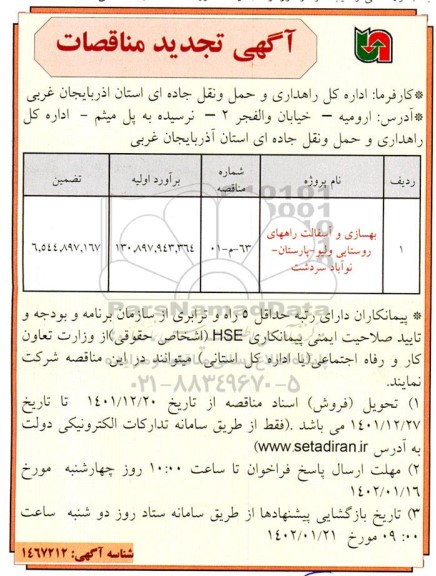 آگهی تجدید مناقصات
*کارفرما: اداره کل راهداری و حمل ونقل جاده ای استان اذربایجان غربی
*آدرس: ارومیه – خیابان والفجر ۲ – نرسیده به پل میثم - اداره کل
راهداری و حمل ونقل جاده ای استان آذربایجان غربی
ردیف نام پروژه شماره مناقصه برآورد اولیه تضمین
۱ بهسازی و آسفالت راههای روستایی ولیو-پارستان-نوآباد سردشت ۶۳-م-۰۱ ۱۳۰,۸۹۷,۹۴۳,۳۶۴ ۶,۵۴۴,۸۹۷,۱۶۷
* پیمانکاران دارای رتبه حداقل ۵ راه و ترابری از سازمان برنامه و بودجه و
تایید صلاحیت ایمنی پیمانکاری HSE (اشخاص حقوقی)از وزارت تعاون
کار و رفاه اجتماعی(یا اداره کل استانی) میتوانند در این مناقصه شرکت
نمایند.
۱) تحویل (فروش) اسناد مناقصه از تاریخ ۱۴۰۱/۱۲/۲۰ تا تاریخ
۱۴۰۱/۱۲/۲۷ می باشد .(فقط از طریق سامانه تدارکات الکترونیکی دولت
به آدرس www.setadiran.ir)
۲) مهلت ارسال پاسخ فراخوان تا ساعت ۱۰:۰۰ روز چهارشنبه مورخ
۱۴۰۲/۰۱/۱۶
۳) تاریخ بازگشایی پیشنهادها از طریق سامانه ستاد روز دو شنبه ساعت
۰۹:۰۰ مورخ ۱۴۰۲/۰۱/۲۱
شناسه آگهی: ۱۴۶۷۲۱۲
ParsNamadData
۰۲۱-۸۸۳۴۹۶۷۰-۵